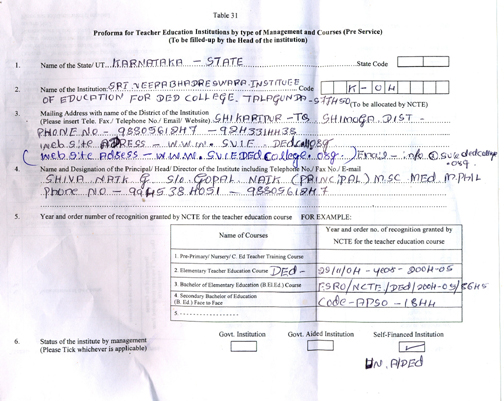 Table 31
Proforma for Teacher Education Institutions by type of Management and Courses (Pre Service)
(To be filled-up by the Head of the institution)
1. Name of the State/ UT.. KARNATAKA - STATE State Code
2. Name of the Institution: SRI VEERABHADRESWARA. INSTITUEE Code K-04
OF EDUCATION FOR DED COLLEGE. TALAGUNDA-577450 (To be allocated by NCTE)
3. Mailing Address with name of the District of the Institution SHIKARIPUR-TQ SHIMOGA. DIST -
(Please insert Tele. Fax / Telephone No./ Email/ Website)
PHONE. NO - 9880561247 -
Web.Site ADRESS - W.W.W. S.V.I.E.
(Web.Site Adress - W.W.W. S.V.I.E DEd College. org.) Email - info @ svie dedcollege
.org.
4. Name and Designation of the Principal/ Head/ Director of the Institute including Telephone No./ Fax No./ E-mail
SHIVA NAIK G S/o. GOPAL. NAIK (PRINCIPAL) M.SC MEd. M.PHIL
Phone NO - 9880561247
5. Year and order number of recognition granted by NCTE for the teacher education course FOR EXAMPLE:
Name of Courses
Year and order no. of recognition granted by NCTE for the teacher education course
1. Pre-Primary/ Nursery/ C. Ed Teacher Training Course
2. Elementary Teacher Education Course DEd - 29/11/04 - year - 2004-05
3. Bachelor of Elementary Education (B.El.Ed.) Course
4. Secondary Bachelor of Education
(B. Ed.) Face to Face Code - APSO - 1844
5.
6. Status of the institute by management
(Please Tick whichever is applicable)
Govt. Institution Govt. Aided Institution Self-Financed Institution
UN. AIDED